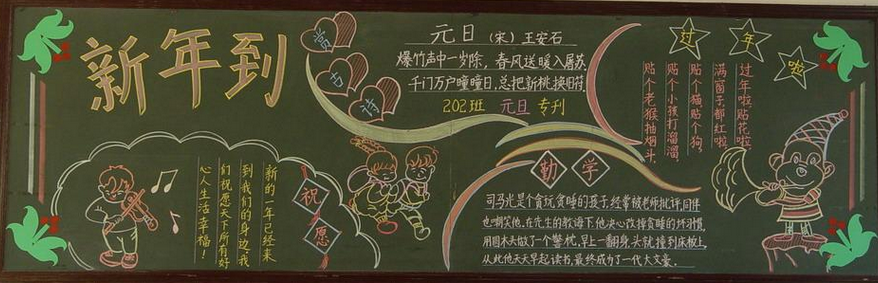 新年到
赏古诗
元日（宋）王安石
爆竹声中一岁除，春风送暖入屠苏，
千门万户曈曈日，总把新桃换旧符。
202班 元旦 专刊
过年啦
过年啦贴花啦，
满窗子都红啦，
贴个猫贴个狗，
贴个小孩打溜溜，
贴个老猴抽烟头。
祝愿
新的一年已经来
到我们的身边，我
们祝愿天下所有好
心人生活幸福！
勤学
司马光是个贪玩贪睡的孩子，经常被老师批评，同伴
也嘲笑他，在先生的教诲下，他决心改掉贪睡的坏习惯，
用圆木头做了一个警枕，早上一翻身，头就撞到床板上，
从此他天天早起读书，最终成为了一代大文豪。